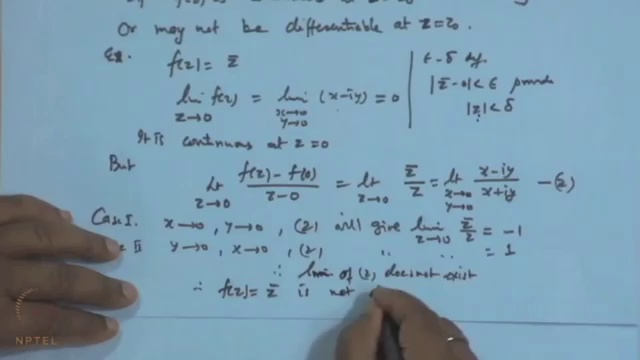 Or may not be differentiable at z=z₀.
Ex. f(z) = z̄
lim z→0 f(z) = lim x→0 y→0 (x-iy) = 0
ε-δ def.
|z̄-0|<ε provide
|z|<δ
It is continuous at z=0
But lt z→0 (f(z) - f(0))/(z-0) = lt z→0 z̄/z = lt x→0 y→0 (x-iy)/(x+iy) —(2)
Case I. x→0, y→0, (2) will give lim z→0 z̄/z = -1
II y→0, x→0, (2), " " = 1
∴ limi of (2) does not exist
∴ f(z) = z̄ is not
NPTEL